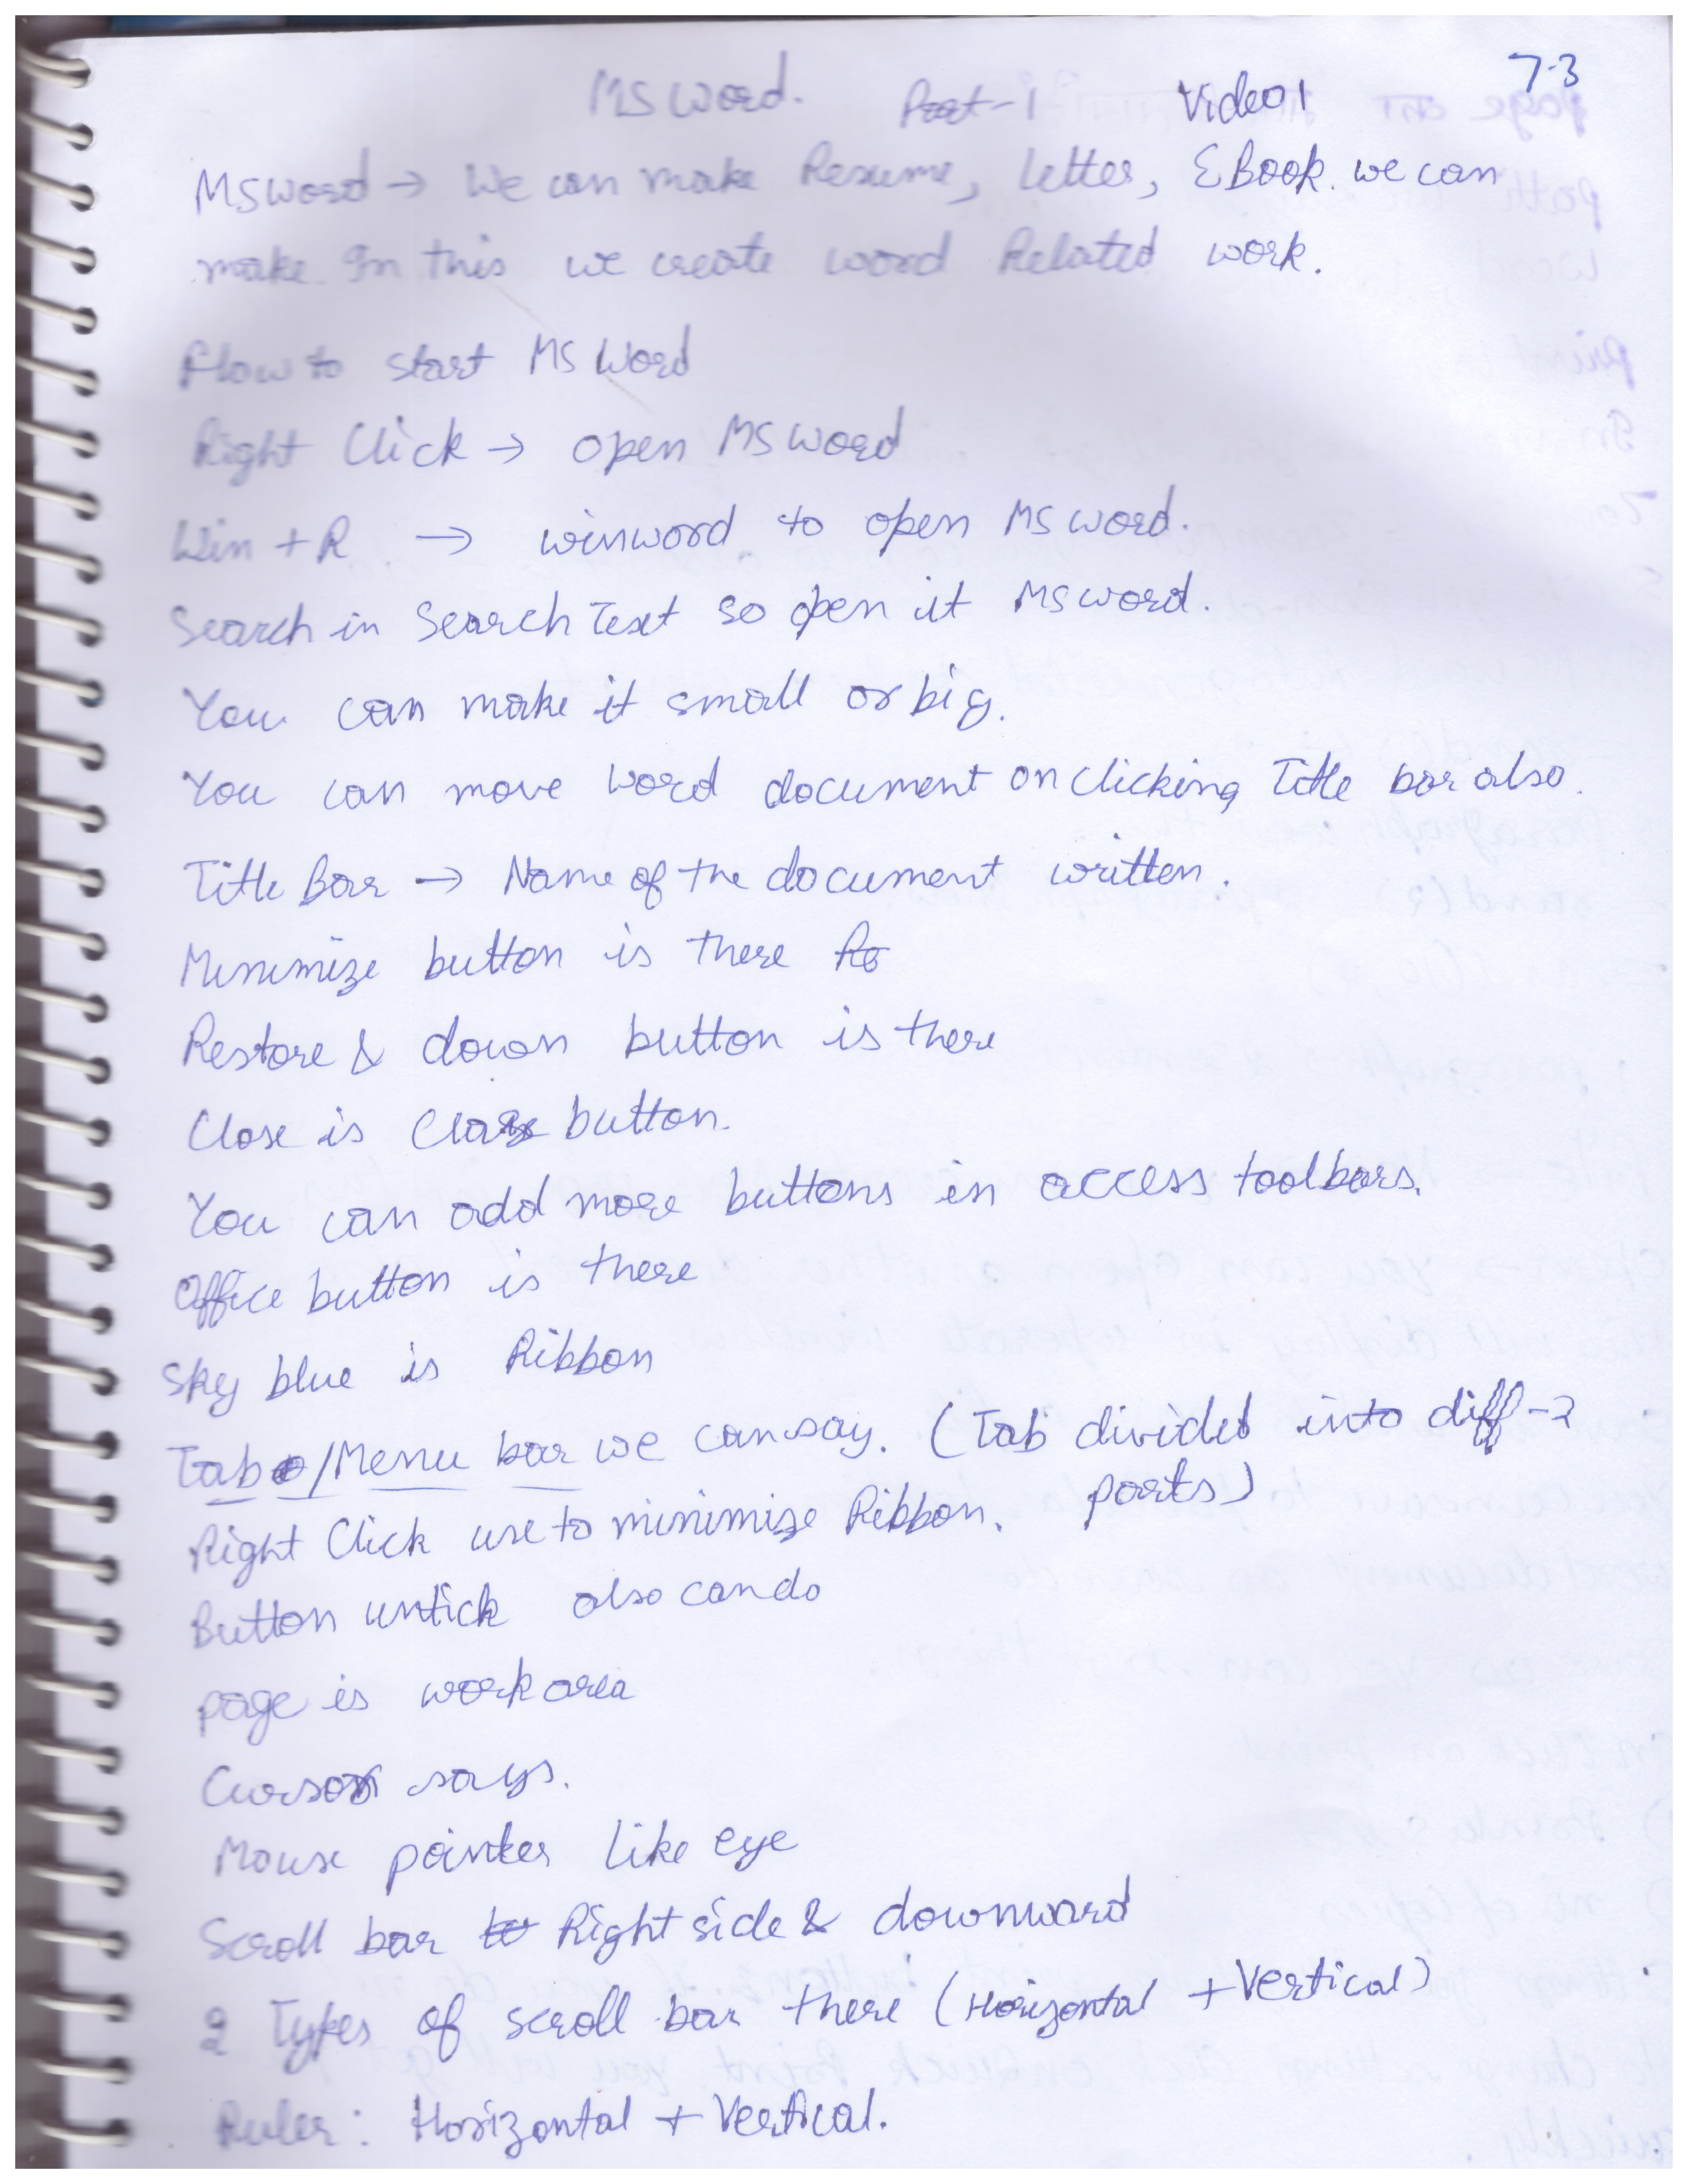 73
MS Word. Part-1 Video 1
MS Word → We can make Resume, Letter, EBook. we can
make. In this we create word Related work.
How to start MS Word
Right Click → open MS Word
Win + R → winword to open MS Word.
Search in Search Text so open it MS Word.
You can make it small or big.
You can move word document on clicking Title bar also.
Title Bar → Name of the document written.
Minimize button is there
Restore & down button is there
Close is Close button.
You can add more buttons in access toolbars.
Office button is there
Sky blue is Ribbon
Tab/Menu bar we can say. (Tab divided into diff-2
parts)
Right Click use to minimize Ribbon.
Button untick also can do
page is work area
Cursor says.
Mouse pointer like eye
Scroll bar Right side & downward
2 Types of scroll bar there (Horizontal + Vertical)
Ruler: Horizontal + Vertical.